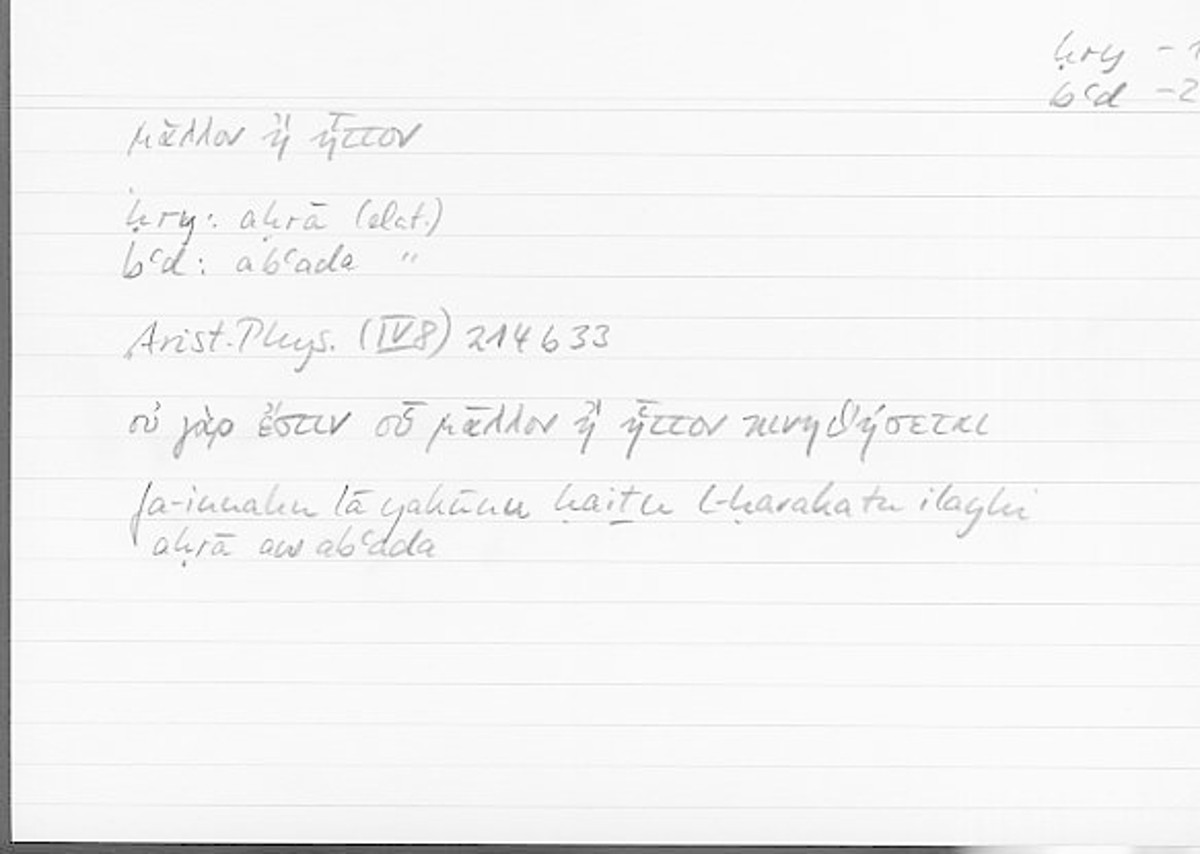 ḥry - 1
bʿd - 2
μᾶλλον ἢ ἧττον
ḥry: aḥrā (elat.)
bʿd: abʿada "
Arist. Phys. (IV 8) 214b33
οὐ γὰρ ἔστιν οὗ μᾶλλον ἢ ἧττον κινηθήσεται
fa-innahu lā yakūnu ḥaiṯu l-ḥarakatu ilayhi
aḥrā aw abʿada